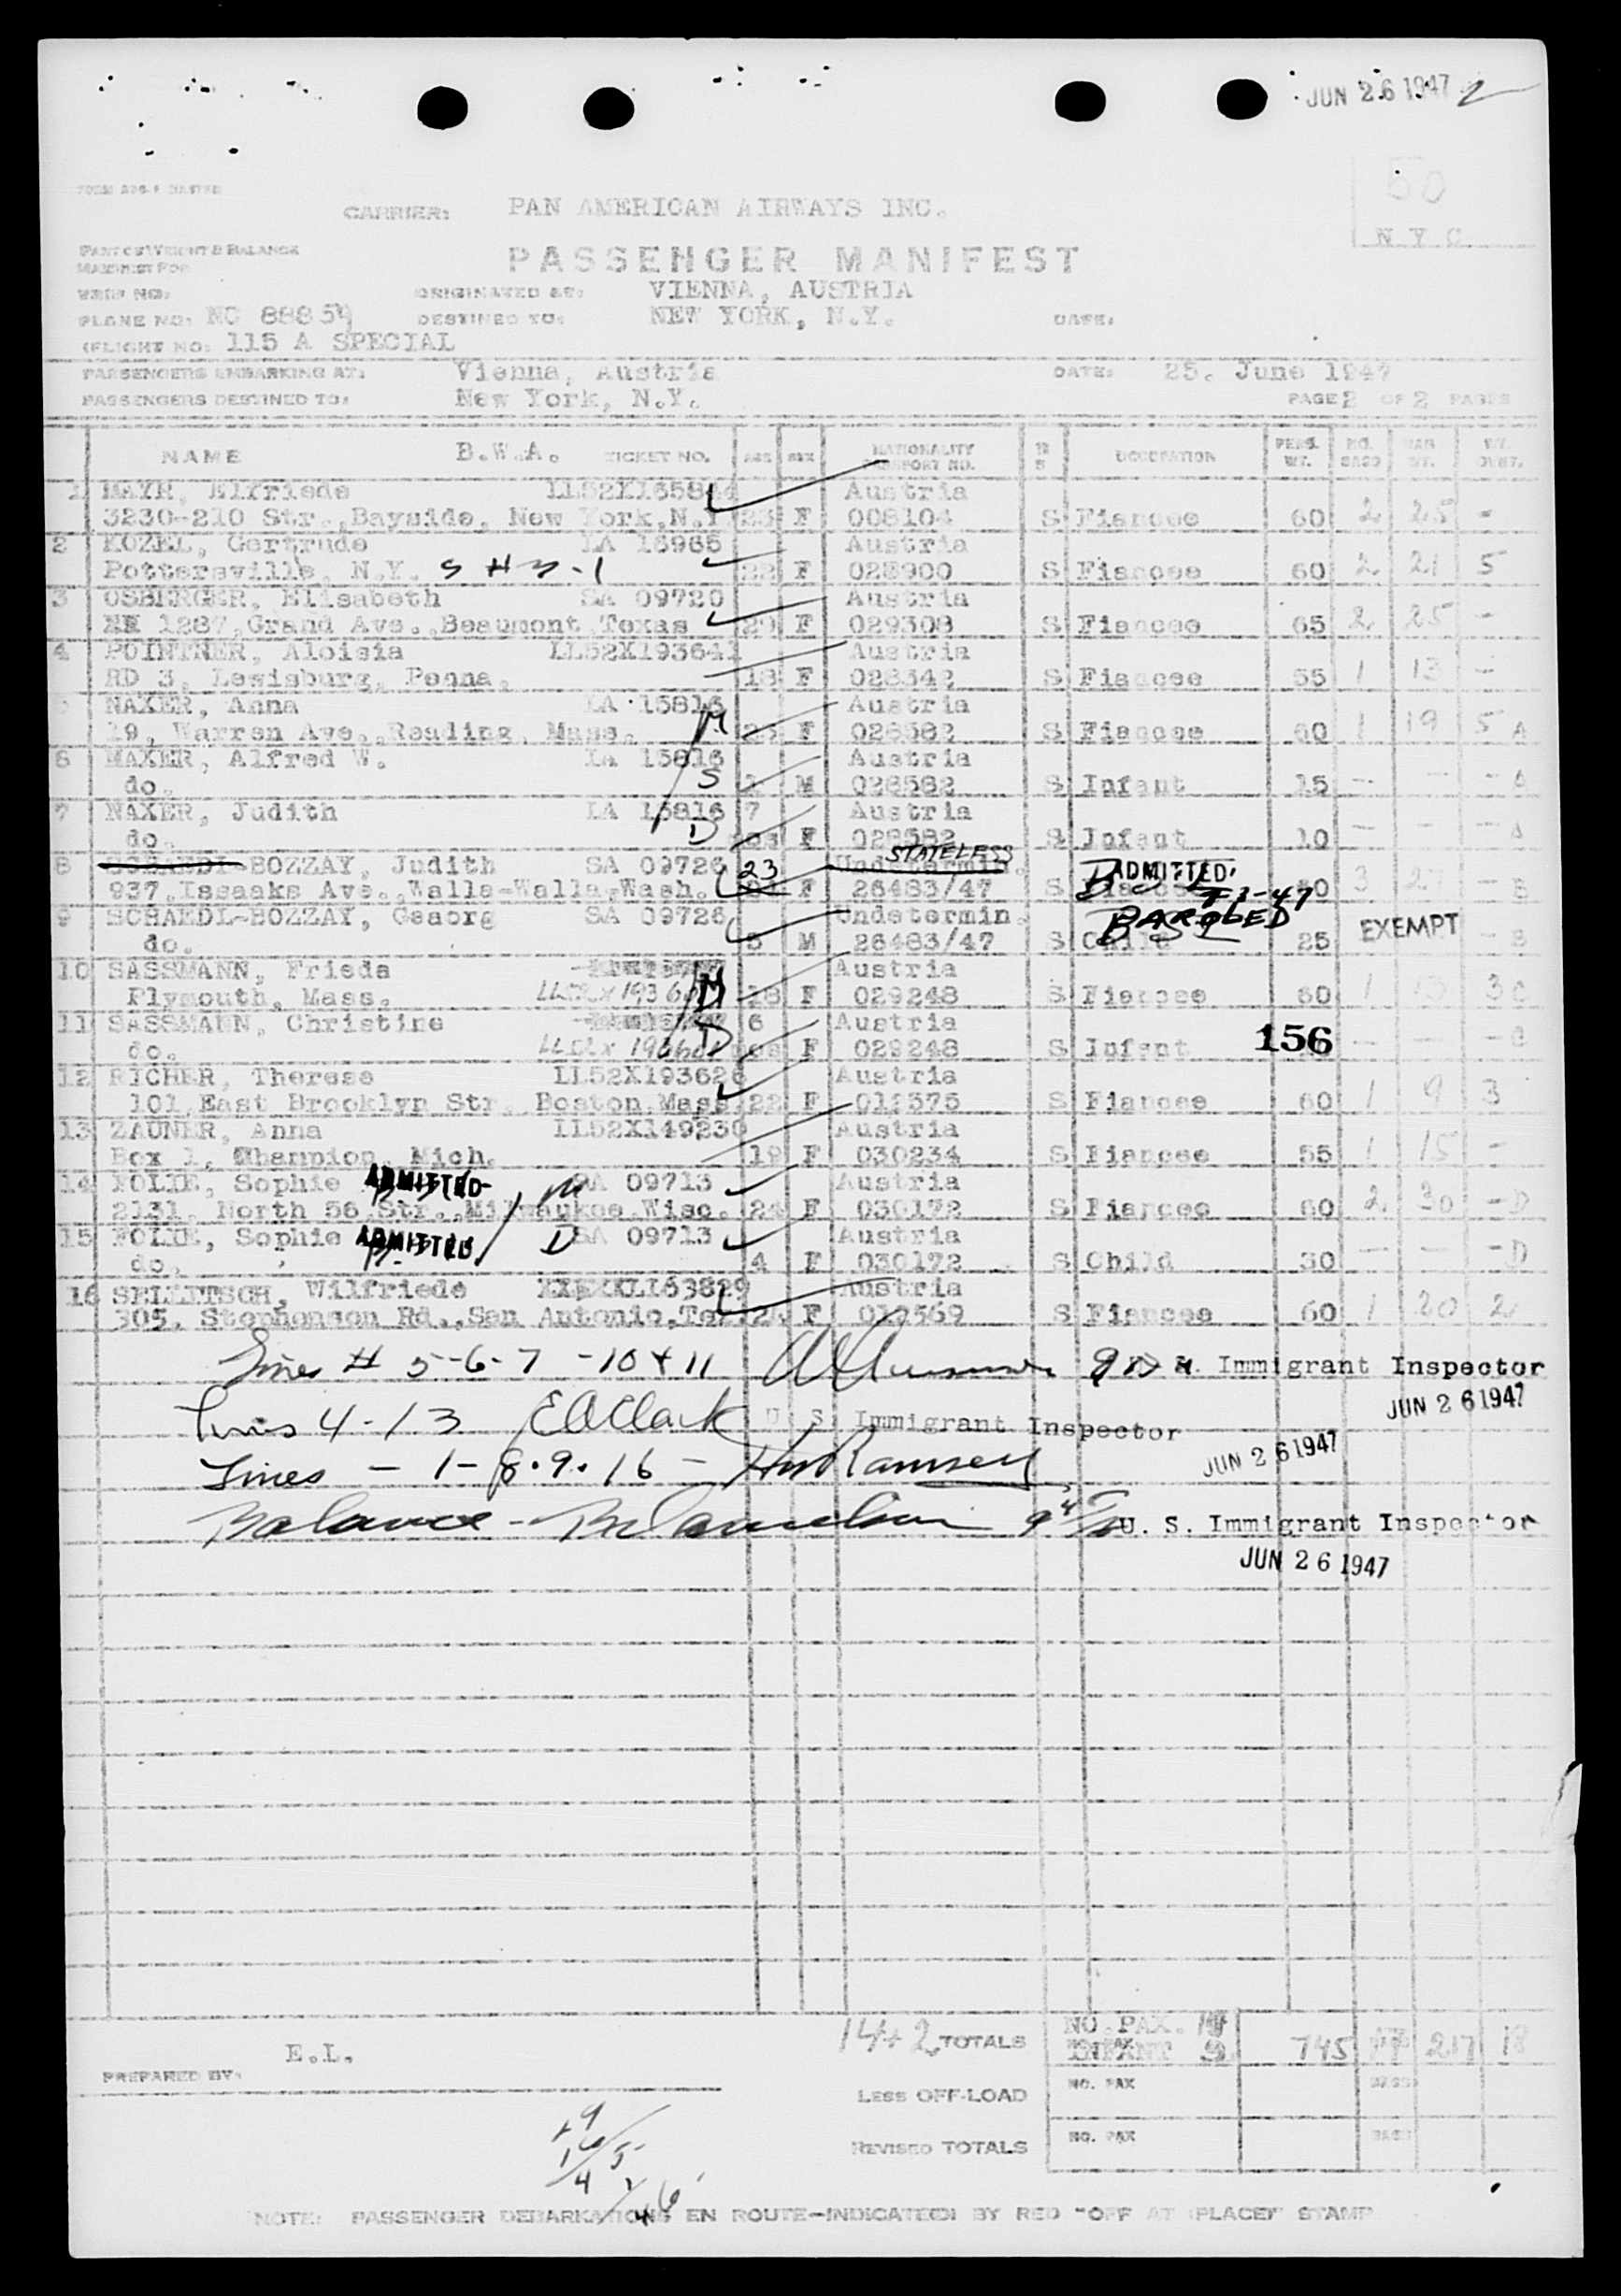 JUN 26 1947 2
50
N Y C
CARRIER: PAN AMERICAN AIRWAYS INC.
PART OF WEIGHT & BALANCE
MANIFEST FOR
PASSENGER MANIFEST
TRIP NO: ORIGINATED AT: VIENNA, AUSTRIA
PLANE NO: NC 88859 DESTINED TO: NEW YORK, N.Y. DATE:
(FLIGHT NO: 115 A SPECIAL
PASSENGERS EMBARKING AT: Vienna, Austria DATE: 25. June 1947
PASSENGERS DESTINED TO: New York, N.Y. PAGE 2 OF 2 PAGES
NAME B.W.A. TICKET NO. AGE SEX NATIONALITY PASSPORT NO. OCCUPATION PERS. WT. NO. BAGS BAG WT.
1 MAYR, Elfriede LL52X165844 Austria
3230-210 Str., Bayside, New York, N.Y 23 F 008104 S Fiancee 60 2 25 -
2 KOZEL, Gertrude LA 16965 Austria
Pottersville, N.Y. S H 3-1 22 F 028900 S Fiancee 60 2 21 5
3 OSBERGER, Elisabeth SA 09720 Austria
1287, Grand Ave., Beaumont, Texas 29 F 029308 S Fiancee 65 2 25 -
4 POINTNER, Aloisia LL52X193641 Austria
RD 3, Lewisburg, Penna. 18 F 028342 S Fiancee 55 1 13 -
NAXER, Anna LA 15816 Austria
19, Warren Ave., Reading, Mass. M F 028582 S Fiancee 60 1 19 5 A
6 NAXER, Alfred W. LA 15816 Austria
do. S 1 M 028582 S Infant 15 - - - A
7 NAXER, Judith LA 15816 7 Austria
do. D F 028582 S Infant 10 - - - A
8 SCHAEDL-BOZZAY, Judith SA 09726 23 Undetermin. STATELESS ADMITTED
937, Issaaks Ave., Walla-Walla, Wash. F 26483/47 S 60 3 27 - B
9 SCHAEDL-BOZZAY, Geaorg SA 09726 Undetermin. PAROLED
do. 5 M 26483/47 S Child 25 EXEMPT - B
10 SASSMANN, Frieda Austria
Plymouth, Mass. M 18 F 029248 S Fiancee 60 1 15 3 C
11 SASSMANN, Christine 6 Austria
do. D F 029248 S Infant 156 - - - C
12 RICHER, Therese LL52X193626 Austria
101, East Brooklyn Str. Boston, Mass. 22 F 012575 S Fiancee 60 1 9 3
13 ZAUNER, Anna LL52X149230 Austria
Box 1, Champion, Mich. 19 F 030234 S Fiancee 55 1 15 -
14 FOLIE, Sophie ADMITTED M SA 09713 Austria
2131, North 56 Str., Milwaukee, Wisc. 24 F 030172 S Fiancee 60 2 30 - D
15 FOLIE, Sophie ADMITTED D SA 09713 Austria
do. 4 F 030172 S Child 30 - - - D
16 SEILITSCH, Wilfriede LL63829 Austria
305, Stephenson Rd., San Antonio, Tex. F 012569 S Fiancee 60 1 20 2
Lines # 5-6-7-10 + 11 Immigrant Inspector
JUN 26 1947
Lines 4-13 E A Clark U. S. Immigrant Inspector
JUN 26 1947
Lines - 1-8.9.16 - Ramsey
Balance - U. S. Immigrant Inspector
JUN 26 1947
14+2 TOTALS NO. PAX. 14 INFANT 745 217 18
PREPARED BY: E.L.
LESS OFF-LOAD NO. PAX BAGS
REVISED TOTALS NO. PAX BAGS
NOTE: PASSENGER DEBARKATIONS EN ROUTE—INDICATED BY RED "OFF AT (PLACE)" STAMP